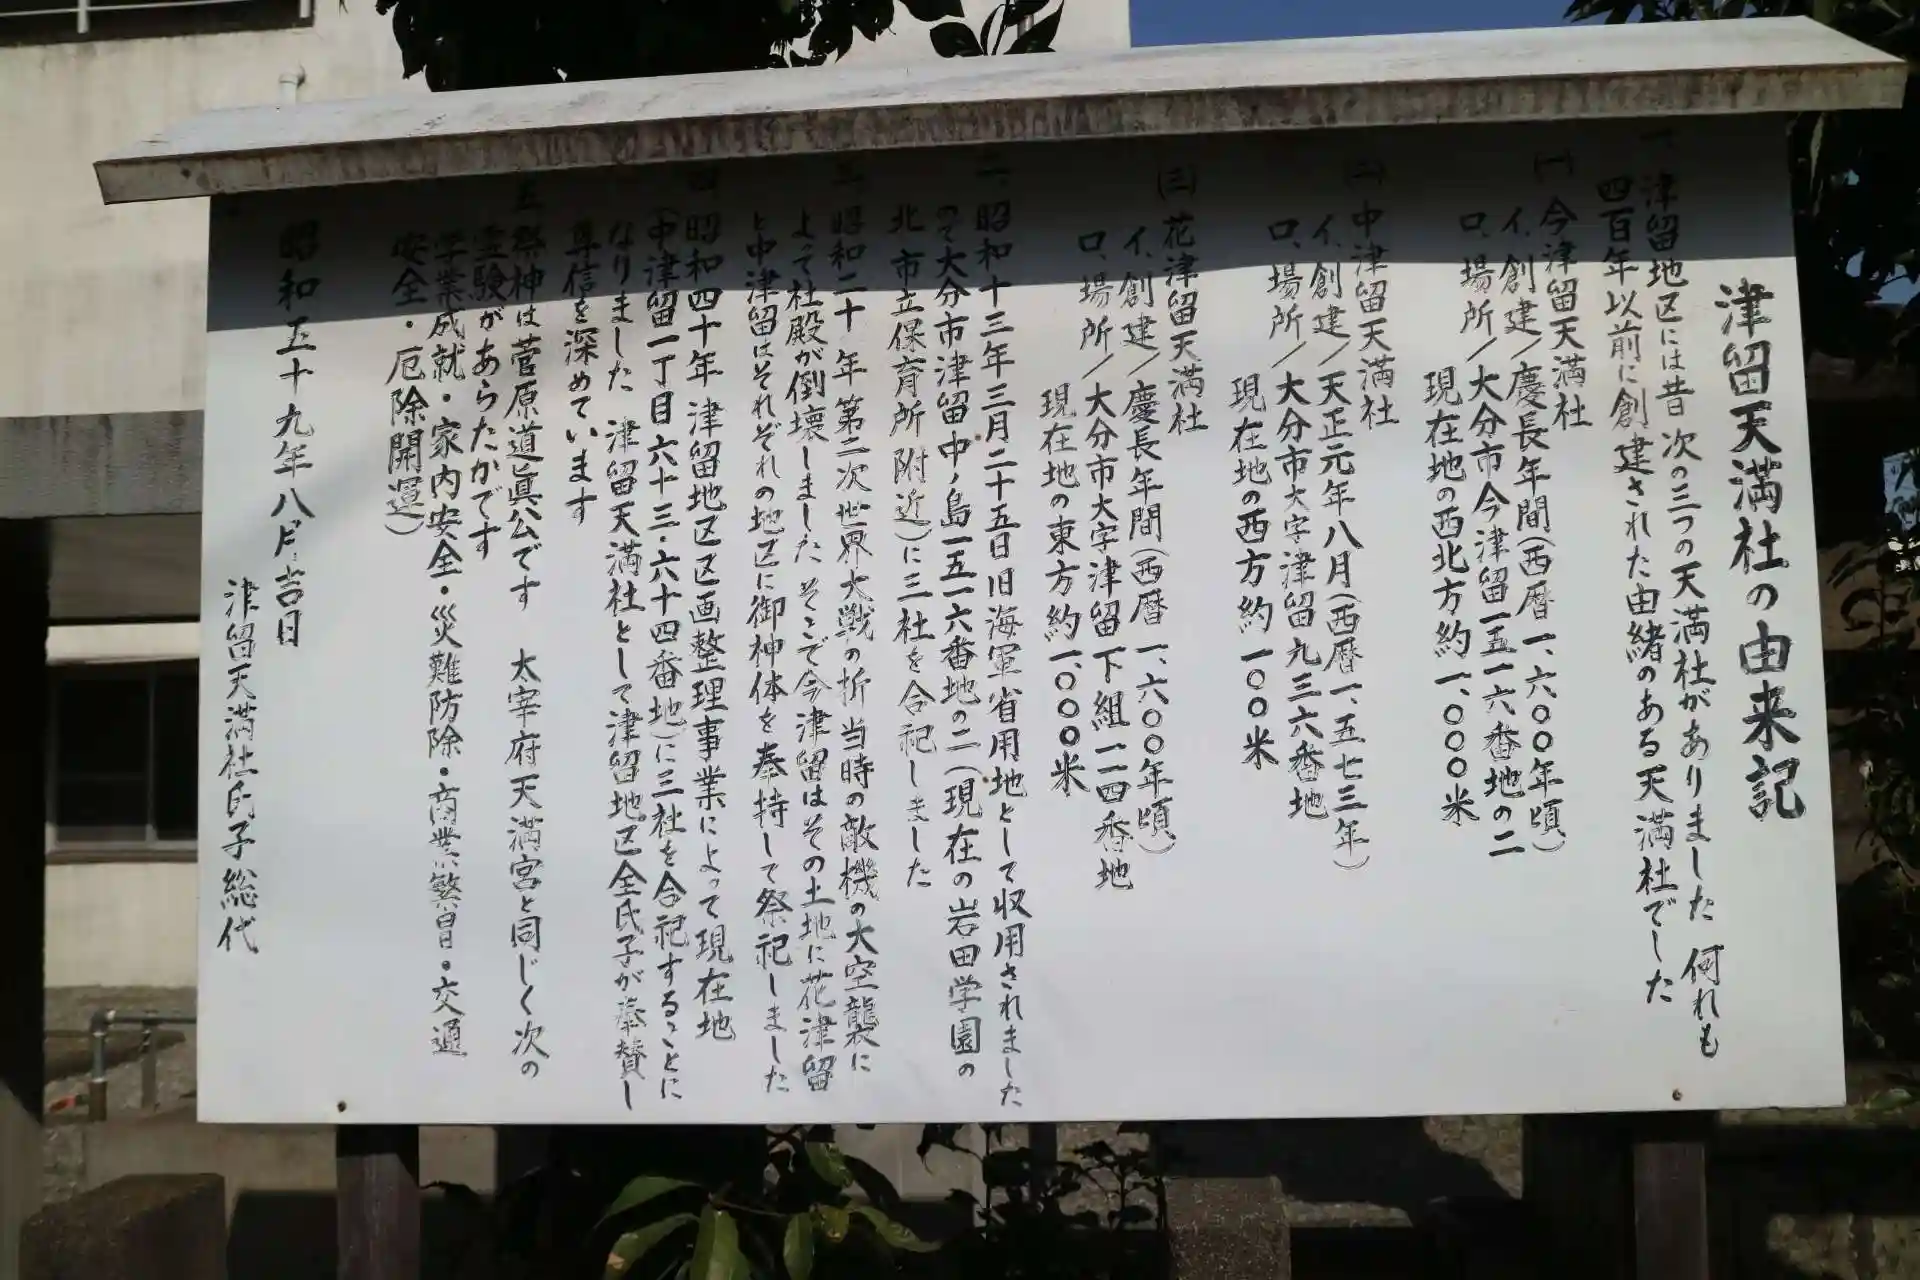 津留天満社の由来記
一、津留地区には昔 次の三つの天満社がありました 何れも
四百年以前に創建された由緒のある天満社でした
(一)今津留天満社
イ、創建/慶長年間(西暦一、六〇〇年頃)
ロ、場所/大分市今津留一五一六番地の二
現在地の西北方約一、〇〇〇米
(二)中津留天満社
イ、創建/天正元年八月(西暦一、五七三年)
ロ、場所/大分市大字津留九三六番地
現在地の西方約一〇〇米
(三)花津留天満社
イ、創建/慶長年間(西暦一、六〇〇年頃)
ロ、場所/大分市大字津留下組一二四番地
現在地の東方約一、〇〇〇米
二、昭和十三年三月二十五日旧海軍省用地として収用されました
ので大分市津留中ノ島一五一六番地の二(現在の岩田学園の
北 市立保育所附近)に三社を合祀しました
三、昭和二十年第二次世界大戦の折 当時の敵機の大空襲に
よって社殿が倒壊しました そこで今津留はその土地に花津留
と中津留はそれぞれの地区に御神体を奉持して祭祀しました
四、昭和四十年 津留地区区画整理事業によって現在地
(中津留一丁目六十三・六十四番地)に三社を合祀することに
なりました 津留天満社として津留地区全氏子が奉賛し
尊信を深めています
五、祭神は菅原道眞公です 太宰府天満宮と同じく次の
霊験があらたかです
学業成就・家内安全・災難防除・商業繁昌・交通
安全・厄除開運)
昭和五十九年八月吉日
津留天満社氏子総代